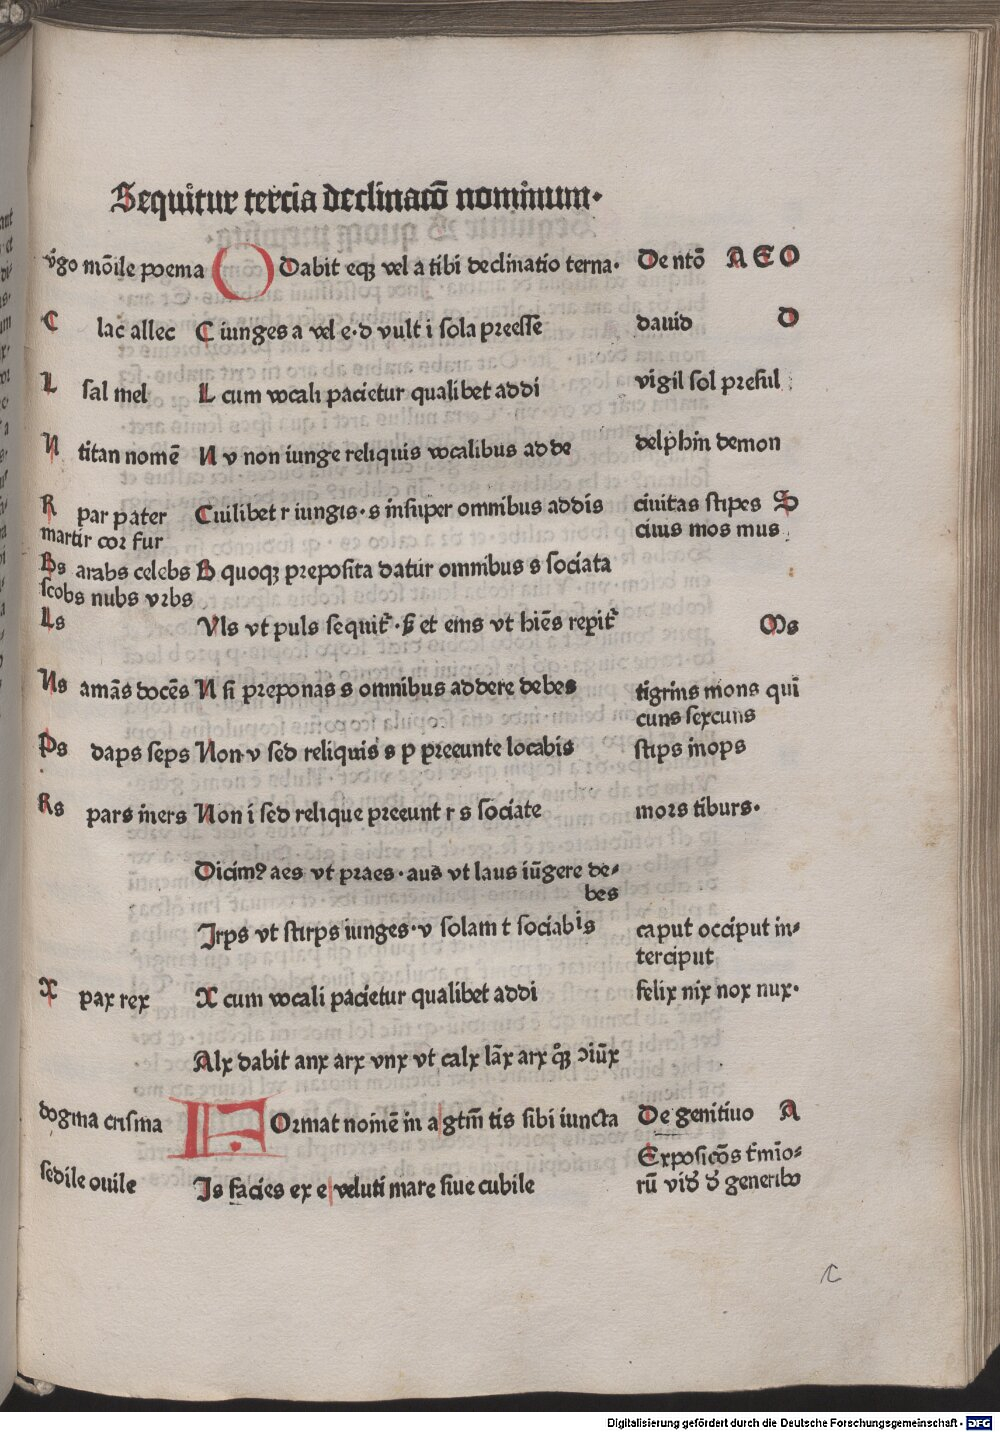 Sequitur tercia declinacō nominum·
v̄go mōile poema O Dabit eqꝫ vel a tibi declinatio terna· De ntō A E O
C lac allec C iunges a vel e·d vult i sola preesse dauid D
L sal mel L cum vocali pacietur qualibet addi vigil sol presul
N titan nomē N v non iunge reliquis vocalibus adde delphin demon
R par pater Cuilibet r iungis·s insuper omnibus addis ciuitas stipes S
martir cor fur ciuis mos mus
Bs arabs celebs B quoqꝫ preposita datur omnibus s sociata
scobs nubs vrbs
Ls Vls vt puls sequit᷑· et ems vt hiēs repit᷑ Ms
Ns amās docēs N si preponas s omnibus addere debes tigrins mons qui
cuns sexcuns
Ps daps seps Non·v sed reliquis s p preeunte locabis stips inops
Rs pars iners Non i sed relique preeunt r s sociate mors tiburs·
Dicimꝰ aes vt praes·aus vt laus iūgere de⸗
bes
Irps vt stirps iunges·v solam t sociabis caput occiput in⸗
terciput
X pax rex X cum vocali pacietur qualibet addi felix nix nox nux·
Alx dabit anx arx vnx vt calx lāx arx qͦꝫ ↄiūx
dogma crisma FOrmat nomē in a gtm̄ tis sibi iuncta De genitiuo A
Exposicōs t̄mīo⸗
sedile ouile Is facies ex e veluti mare siue cubile rū vid̄ d̄ generibꝰ
Digitalisierung gefördert durch die Deutsche Forschungsgemeinschaft - DFG